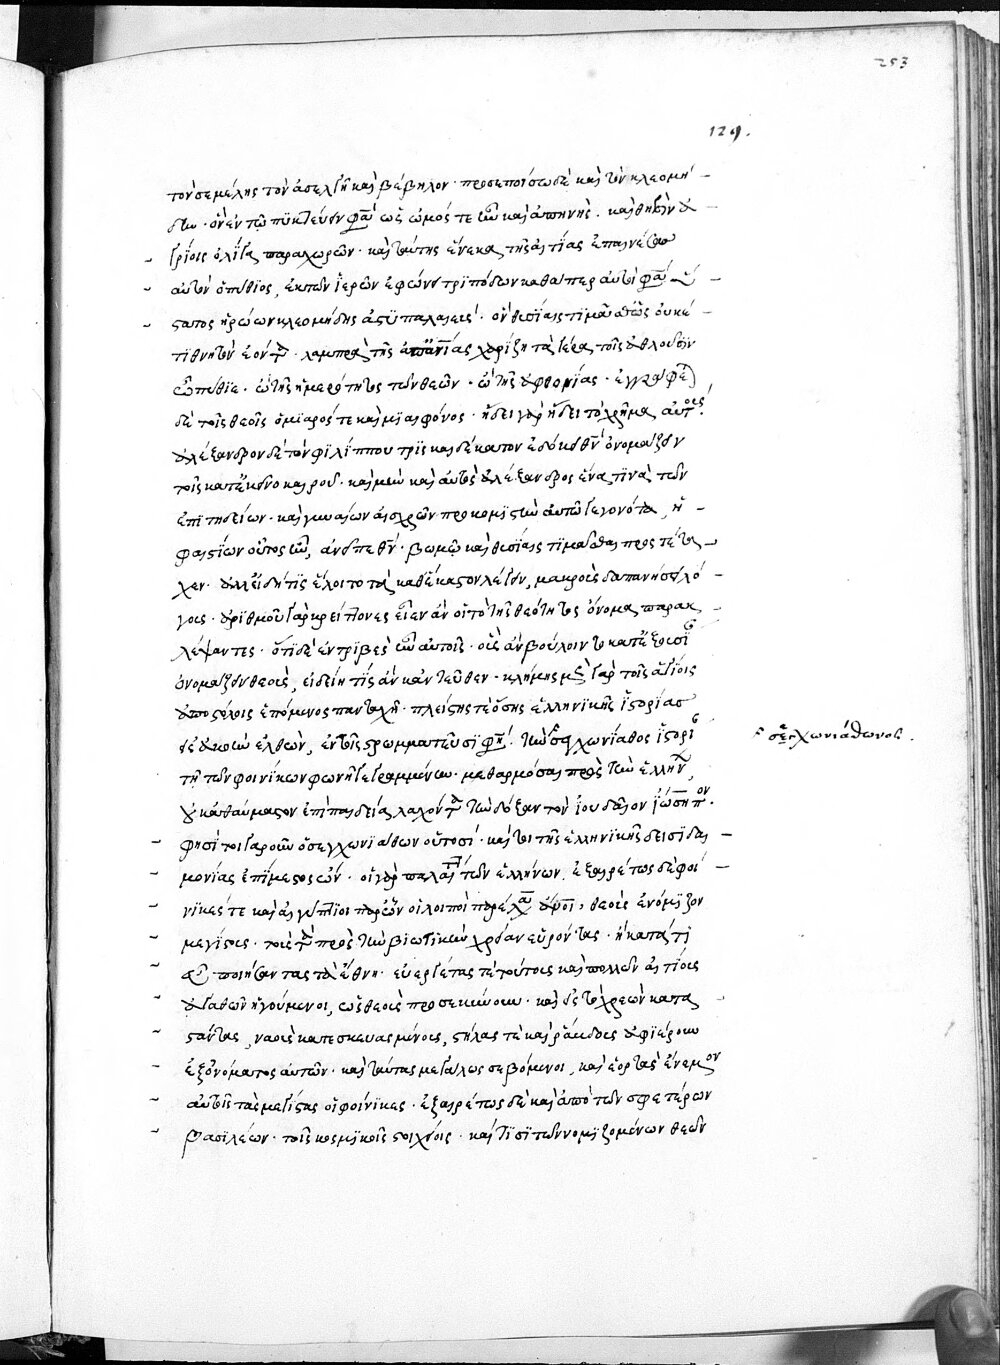 253
129.
τὸν σεμέλης τὸν ἀσελγῆ καὶ βέβηλον· προσεποίσω δὲ καὶ τὸν κλεομή
δην· ὃν ἐν τῷ πυκτεύειν φασὶν ὡς ὠμός τε ἦν καὶ ἀπηνὴς·
ὀλίγα παραχωρῶν· καὶ ταύτης ἕνεκα τῆς αἰτίας ἐπαινέσαι
αὐτὸν ὁ πύθιος, ἐκ τῶν ἱερῶν ἐφώνει τριπόδων καθάπερ αὐτοί φασιν
στατος ἡρώων κλεομήδης ἀστυπαλαιεύς· ὃν θυσίαις τιμᾶσθ' ὡς οὐκέ
τι θνητὸν ἐόντα· λαμπρὰ τῆς ἀπανίας τὰ γέρα τοῖς ἀθλοῦσιν
ὦ πύθιε· ὢ τῆς ἡμερότητος τῶν θεῶν· ὢ τῆς ἀφθονίας· ἐγγράφεται
δὲ τοῖς θεοῖς ὁ μιαρός τε καὶ μιαιφόνος· ἤδει γὰρ ἤδει τὸ χρῆμα αὐτοῖς·
ἀλέξανδρον δὲ τὸν φιλίππου τρισκαιδέκατον ἐδόκει θεὸν ὀνομάζειν
τοῖς κατ' ἐκεῖνο καιροῦ· καὶ μὴν καὶ αὐτὸς ἀλέξανδρος ἕνα τινὰ τῶν
ἐπιτηδείων· καὶ γυναίων αἰσχρῶν προκομιστὴν αὐτῷ γεγονότα, ἡ
φαιστίων οὗτος ἦν, ἀνεῖπε θεὸν· βωμῷ καὶ θυσίαις τιμᾶσθαι προστέτα
χεν· ἀλλ' εἰ δή τις ἕλοιτο τὰ καθ' ἕκαστον λέγειν, μακροὺς δαπανήσει λό
γους· ἀριθμοῦ γὰρ κρείττονες εἶεν ἂν οἱ τὸ τῆς θεότητος ὄνομα παρακ
λέψαντες· ὅτι δὲ ἐντριβὲς ἦν αὐτοῖς· οὓς ἂν βούλοιντο κατ' ἐξουσίαν
ὀνομάζειν θεοὺς, εἰδείη τίς ἂν κἀντεῦθεν· κλήμης μὲν γὰρ τοῖς ἁγίοις
ἀποστόλοις ἑπόμενος πανταχῆ· πλείστης τε ὅσης ἑλληνικῆς ἱστορίας
εἰς ἀκοὴν ἐλθὼν, ἐν τοῖς στρωματεῦσί φησι· τὴν σαγχωνιάθος ἱστορίαν
τῇ τῶν φοινίκων φωνῇ γεγραμμένην· μεθαρμόσαι πρὸς τὴν ἑλλήνων,
οὐκ ἀθαύμαστον ἐπὶ παιδείᾳ λαχόντα τὴν δόξαν τὸν ἰουδαῖον ἰώσηπον·
φησί τοι γαροῦν ὁ σαγχωνιάθων οὑτοσί· καί τοι τῆς ἑλληνικῆς δεισιδαι
μονίας ἐπίμεστος ὤν· οἱ γὰρ παλαίτατοι τῶν ἑλλήνων. ἐξαιρέτως δὲ φοί
νικές τε καὶ αἰγύπτιοι παρ' ὧν οἱ λοιποὶ παρέλαβον ἄνθρωποι, θεοὺς ἐνόμιζον
μεγίστους· τοὺς τὰ πρὸς τὴν βιωτικὴν χρείαν εὑρόντας· ἢ κατά τι
εὖ ποιήσαντας τὰ ἔθνη· εὐεργέτας τε τούτους καὶ πολλῶν αἰτίους
ἀγαθῶν ἡγούμενοι, ὡς θεοὺς προσεκύνουν· καὶ εἰς τὸ χρεὼν κατα
στάντας, ναοὺς κατεσκευασμένοι, στήλας τε καὶ ῥάβδους ἀφιέρουν
ἐξ ὀνόματος αὐτῶν· καὶ ταύτας μεγάλως σεβόμενοι, καὶ ἑορτὰς ἔνεμον
αὐτοῖς τὰς μεγίστας οἱ φοίνικες· ἐξαιρέτως δὲ καὶ ἀπὸ τῶν σφετέρων
βασιλέων· τοῖς κοσμικοῖς στοιχείοις· καί τισι τῶν νομιζομένων θεῶν